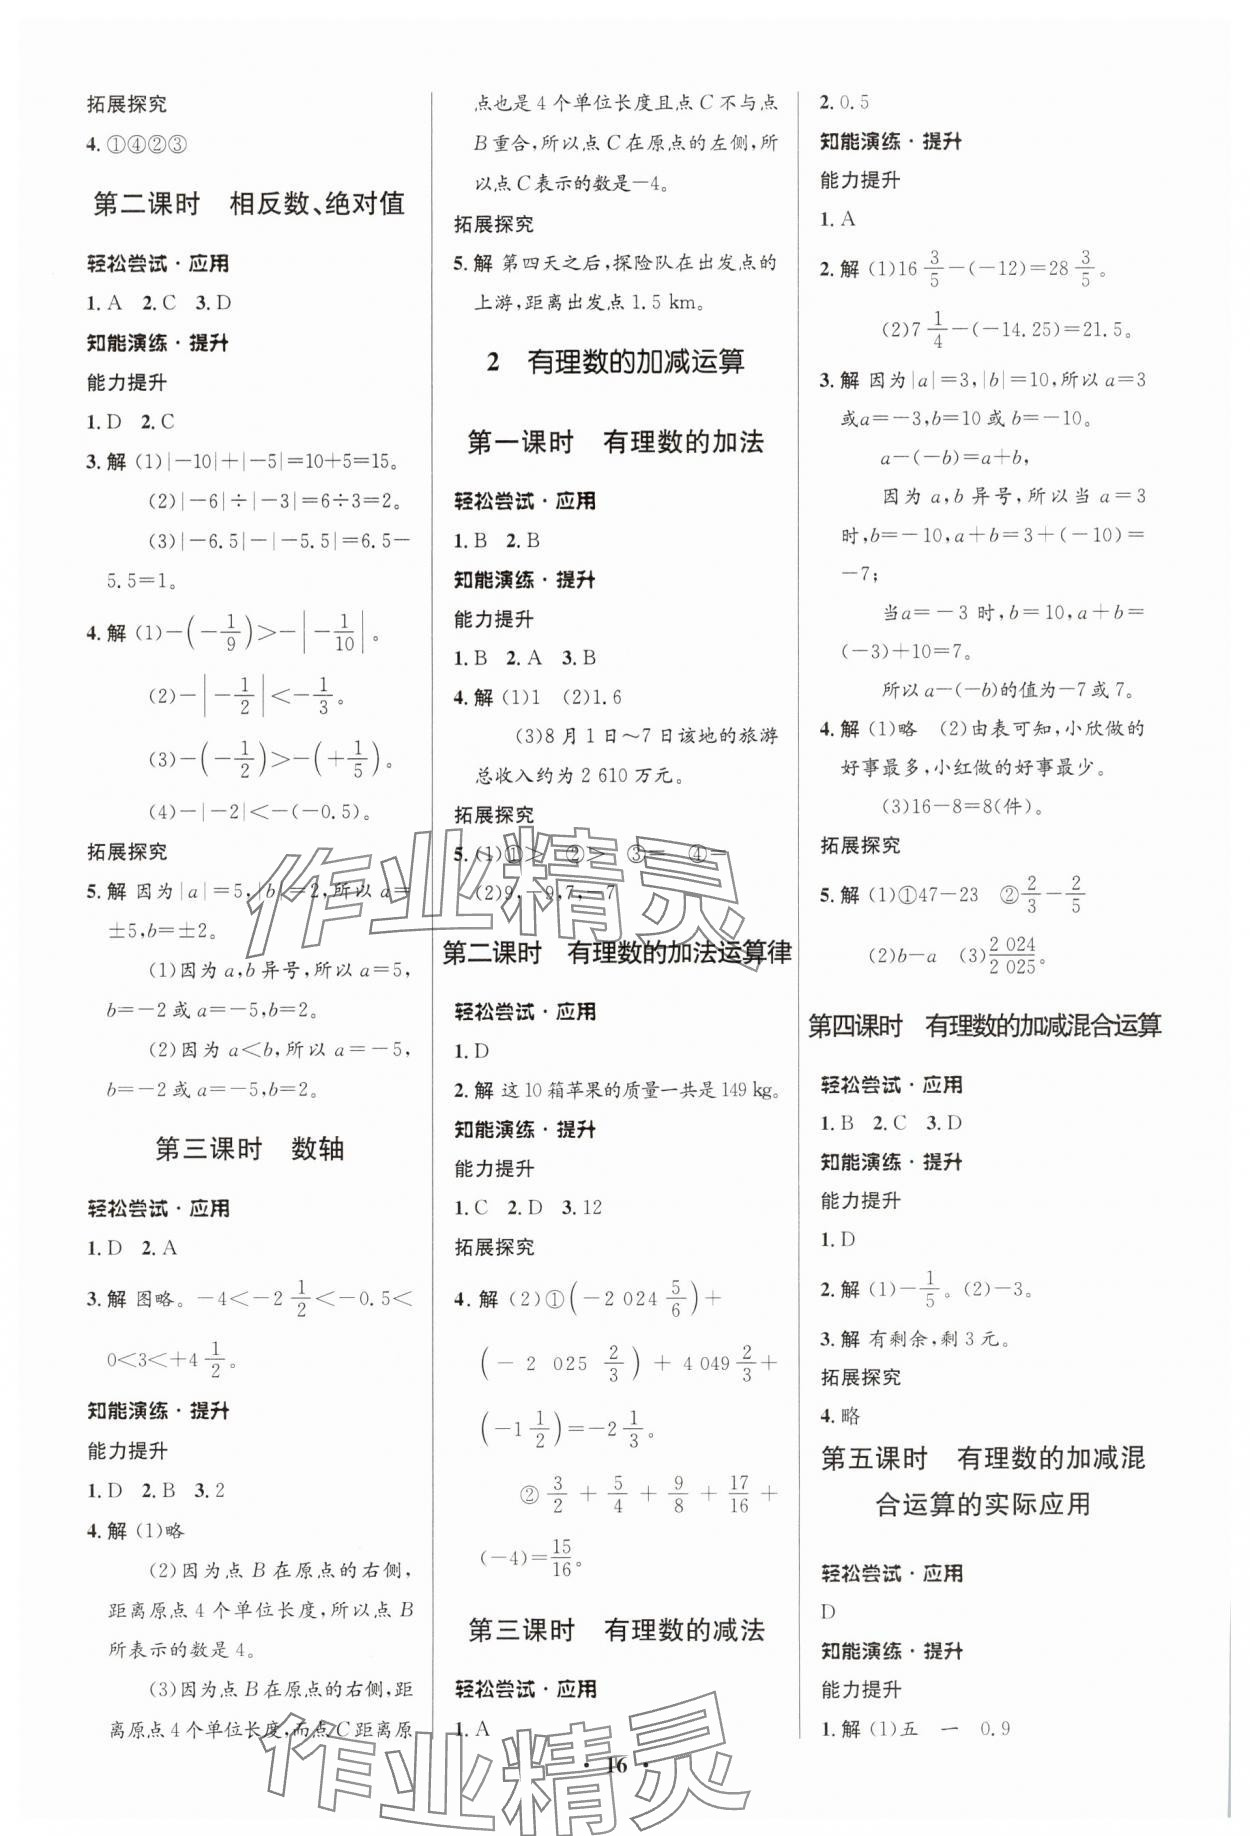 拓展探究
4.①④②③
第二课时　相反数、绝对值
轻松尝试·应用
1.A　2.C　3.D
知能演练·提升
能力提升
1.D　2.C
3.解 (1)|-10|+|-5|=10+5=15。
(2)|-6|÷|-3|=6÷3=2。
(3)|-6.5|-|-5.5|=6.5-
5.5=1。
4.解 (1)-(-1/9)>-|-1/10|。
(2)-|-1/2|<-1/3。
(3)-(-1/2)>-(+1/5)。
(4)-|-2|<-(-0.5)。
拓展探究
5.解 因为|a|=5,|b|=2,所以a=
±5,b=±2。
(1)因为a,b异号,所以a=5,
b=-2或a=-5,b=2。
(2)因为a<b,所以a=-5,
b=-2或a=-5,b=2。
第三课时　数轴
轻松尝试·应用
1.D　2.A
3.解 图略。-4<-2 1/2<-0.5<
0<3<+4 1/2。
知能演练·提升
能力提升
1.D　2.B　3.2
4.解 (1)略
(2)因为点B在原点的右侧,
距离原点4个单位长度,所以点B
所表示的数是4。
(3)因为点B在原点的右侧,距
离原点4个单位长度,而点C距离原
点也是4个单位长度且点C不与点
B重合,所以点C在原点的左侧,所
以点C表示的数是-4。
拓展探究
5.解 第四天之后,探险队在出发点的
上游,距离出发点1.5 km。
2　有理数的加减运算
第一课时　有理数的加法
轻松尝试·应用
1.B　2.B
知能演练·提升
能力提升
1.B　2.A　3.B
4.解 (1)1　(2)1.6
(3)8月1日~7日该地的旅游
总收入约为2 610万元。
拓展探究
5.(1)①>　②>　③=　④=
(2)9,-9,7,-7
第二课时　有理数的加法运算律
轻松尝试·应用
1.D
2.解 这10箱苹果的质量一共是149 kg。
知能演练·提升
能力提升
1.C　2.D　3.12
拓展探究
4.解 (2)①(-2 024 5/6)+
(-2 025 2/3)+4 049 2/3+
(-1 1/2)=-2 1/3。
②3/2+5/4+9/8+17/16+
(-4)=15/16。
第三课时　有理数的减法
轻松尝试·应用
1.A
2.0.5
知能演练·提升
能力提升
1.A
2.解 (1)16 3/5-(-12)=28 3/5。
(2)7 1/4-(-14.25)=21.5。
3.解 因为|a|=3,|b|=10,所以a=3
或a=-3,b=10或b=-10。
a-(-b)=a+b,
因为a,b异号,所以当a=3
时,b=-10,a+b=3+(-10)=
-7;
当a=-3时,b=10,a+b=
(-3)+10=7。
所以a-(-b)的值为-7或7。
4.解 (1)略　(2)由表可知,小欣做的
好事最多,小红做的好事最少。
(3)16-8=8(件)。
拓展探究
5.解 (1)①47-23　②2/3-2/5
(2)b-a　(3)2 024/2 025。
第四课时　有理数的加减混合运算
轻松尝试·应用
1.B　2.C　3.D
知能演练·提升
能力提升
1.D
2.解 (1)-1/5。(2)-3。
3.解 有剩余,剩3元。
拓展探究
4.略
第五课时　有理数的加减混
合运算的实际应用
轻松尝试·应用
D
知能演练·提升
能力提升
1.解 (1)五　一　0.9
·16·
作业精灵
作业精灵